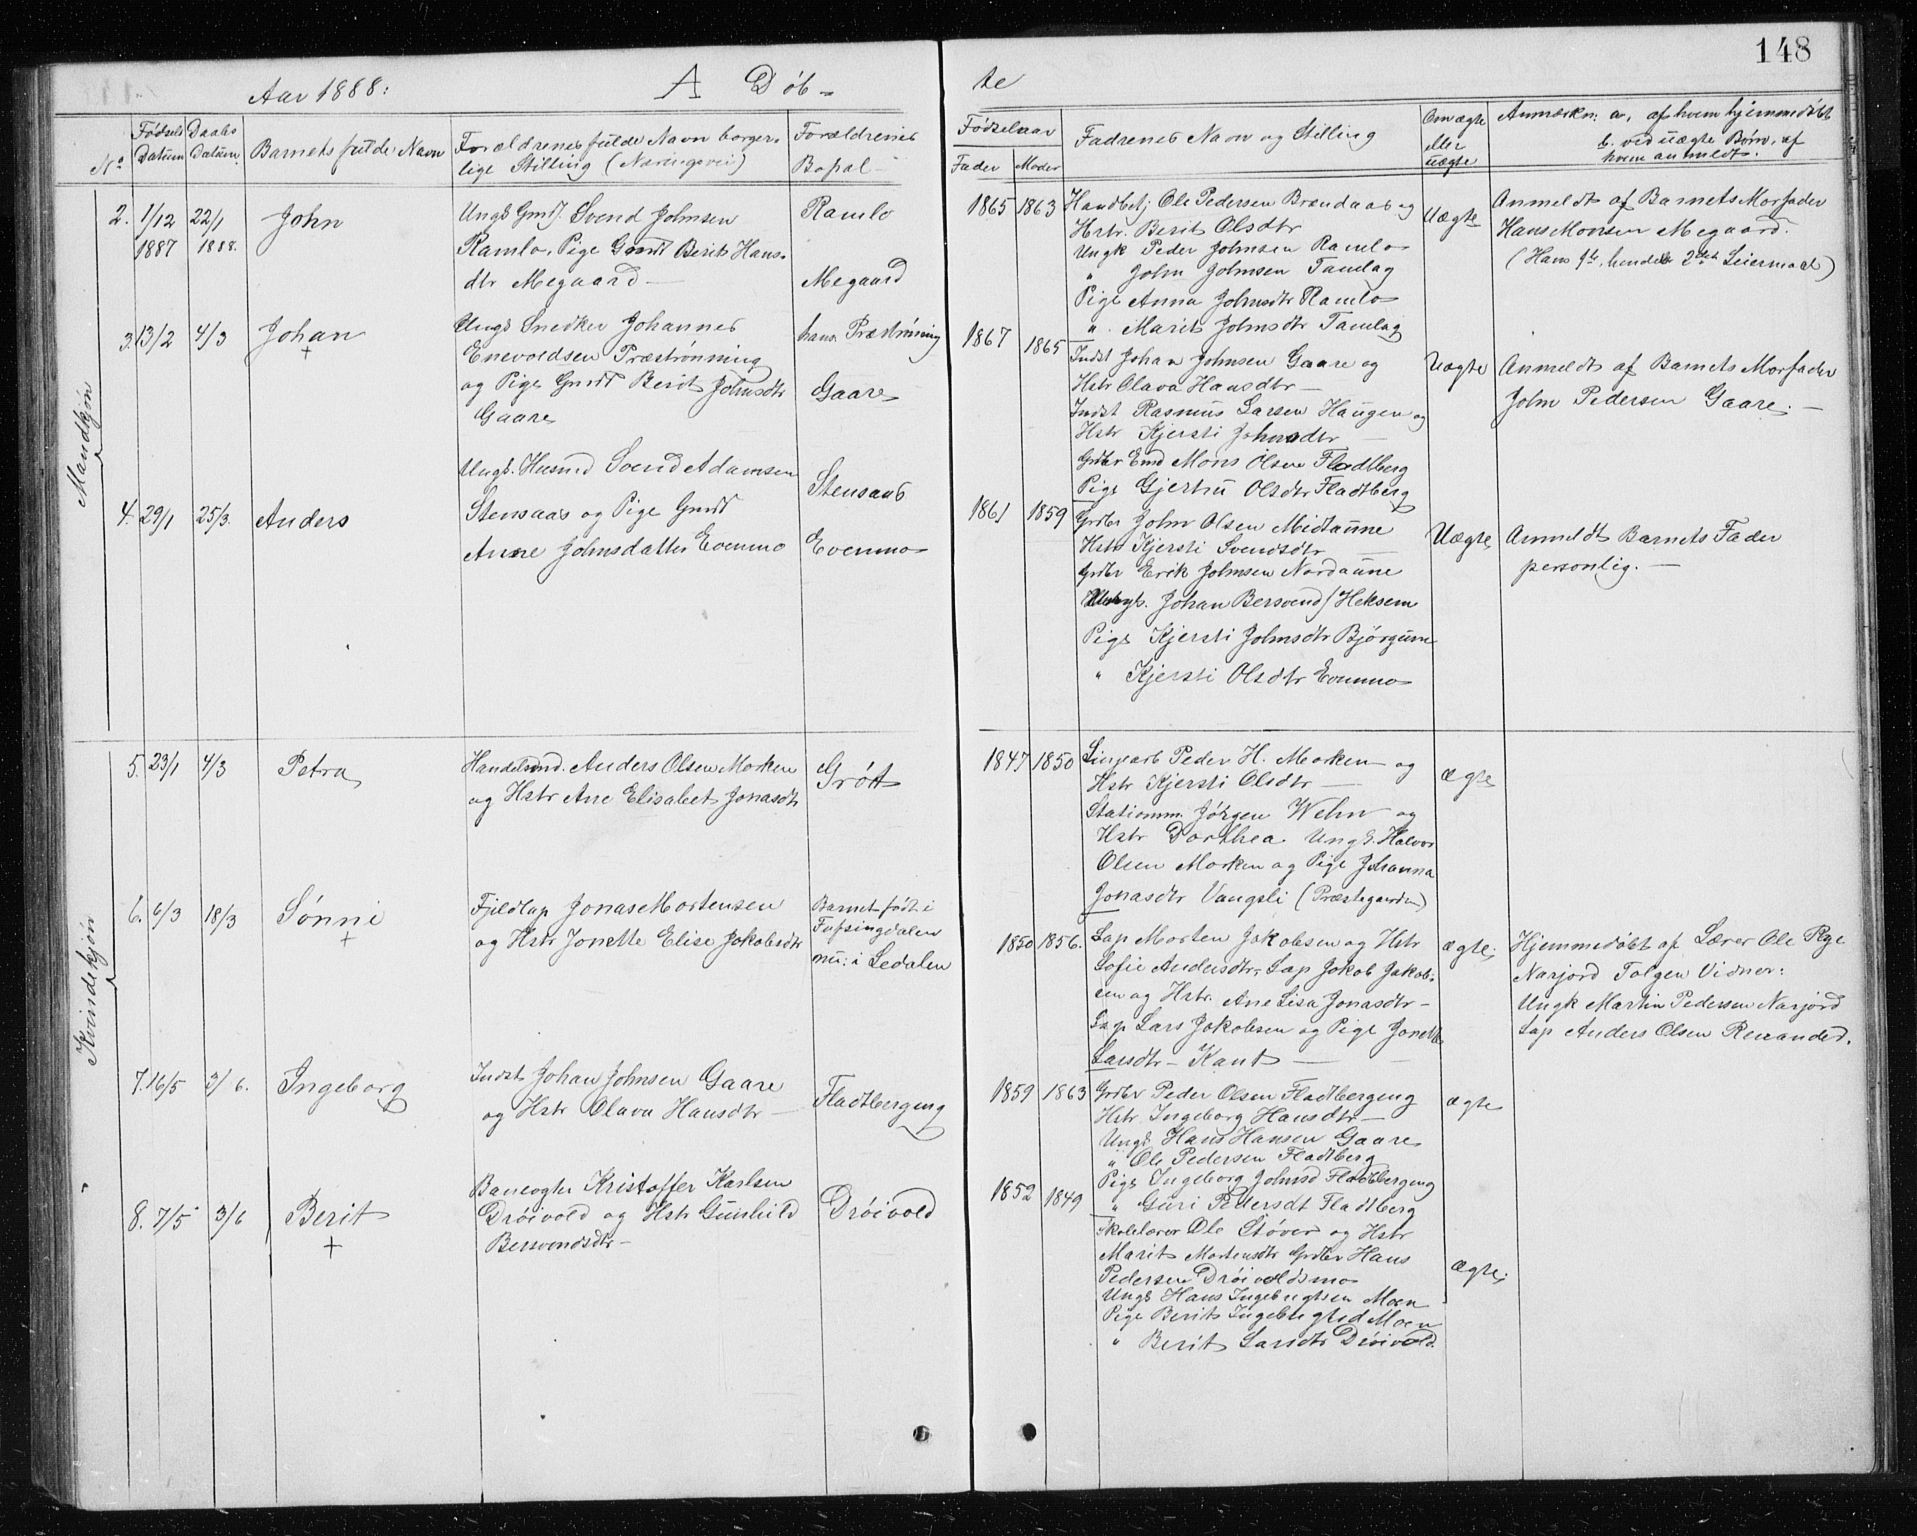 148
Aar 1888: A Døb- te
No Fødsels Datum Daabs Datum Barnets fulde Navn Forældrenes fulde Navn borger- lige Stilling (Næringsvei) Forældrenes Bopæl
Fødselsaar Fader Moder Faddrenes Navn og Stilling Om ægte eller uægte Anmerkn: a, af hvem hjemmedøbt
b. ved uægte Børn, af
hvem anmeldt.
Mandkjøn
2. 1/12 1887 22/1 1888. John
Ungk Gmdf. Svend Johnsen
Ramlo, Pige Gmdt Berit Hans-
dtr Megaard
Ramlo
Megaard
1865 1863
Handbetj Ole Pedersen Brændaas og
Hstr. Berit Olsdtr
Ungk Peder Johnsen Ramlo
" John Johnsen Tamlag
Pige Anna Johnsdtr Ramlo
" Marit Johnsdtr Tamlag
Uægte
Anmeldt af Barnets Morfader
Hans Monsen Megaard.
(Hans 1ste, hendes 2det Leiermaal)
3. 13/2 4/3 Johan
+
Ungk Snedker Johannes
Enevoldsen Præstrønning
og Pige Gmdt Berit Johnsdtr
Gaare
hans Præstrønning
Gaare
1867 1865
Indst Johan Johnsen Gaare og
Hstr Olava Hansdtr
Indst Rasmus Larsen Haugen og
Hstr Kjersti Johnsdtr
Grdbr Emd Mons Olsen Fladtberg
Pige Gjertru Olsdtr Fladtberg
Uægte
Anmeldt af Barnets Morfader
John Pedersen Gaare.
4. 29/1 25/3. Anders
Ungk. Husmd Svend Adamsen
Stensaas og Pige Gmdt
Anne Johnsdatter Evenmo
Stensaas
Evenmo
1861 1859
Grdbr John Olsen Midtaune
Hstr Kjersti Svendsdtr
Grdbr Erik Johnsen Nordaune
Ungk. Johan Bersvend/ Heksem
Pige Kjersti Johnsdtr Bjørgum
" Kjersti Olsdtr Evenmo
Uægte
Anmeldt Barnets Fader
personlig.
Kvindekjøn
5. 23/1 4/3 Petra
Handelsmd. Anders Olsen Morken
og Hstr Ane Elisabet Jonasdtr
Grøtt
1847 1850
Linjearb Peder H. Morken og
Hstr Kjersti Olsdtr
Stationsm. Jørgen Wehn og
Hstr Dorthea Ungk. Halvor
Olsen Morken og Pige Johanna
Jonasdtr Vangsli (Præstegaarden)
ægte
6. 6/3 18/3 Sønni
+
Fjeldlap Jonas Mortensen
og Hstr Jonette Elise Jakobsdtr
Barnet født i
Fufsingdalen
nu: i Ledalen
1850 1856.
Lap Morten Jakobsen og Hstr
Sofie Andersdtr, Lap Jakob Jakob-
sen og Hstr. Ane Lisa Jonasdtr
Lap Lars Jakobsen og Pige Jonette
Larsdtr Kant
ægte.
Hjemmedøbt af Lærer Ole Rye
Narjord Tolgen Vidner:
Ungk Martin Pedersen Narjord
Lap Anders Olsen Renander.
7. 16/5 3/6. Ingeborg
Indst Johan Johnsen Gaare
og Hstr Olava Hansdtr
Fladtbergeng
1859 1863
Grdbr Peder Olsen Fladtbergeng
Hstr Ingeborg Hansdtr
Ungk Hans Hansen Gaare
" Ole Pedersen Fladtberg
Pige Ingeborg Johnsd Fladtbergeng
" Guri Pedersdt Fladtberg
ægte
8. 7/5 3/6 Berit
+
Banevogter Kristoffer Karlsen
Drøivold og Hstr Gunhild
Bersvendsdtr
Drøivold
1852 1849
Skolelærer Ole Støver og Hstr
Marit Mortensdtr Grdbr Hans
Pedersen Drøivoldsmo
Ungk Hans Ingebrigtsen Moen
Pige Berit Ingebrigtsd Moen
" Berit Larsdtr Drøivold.
ægte.